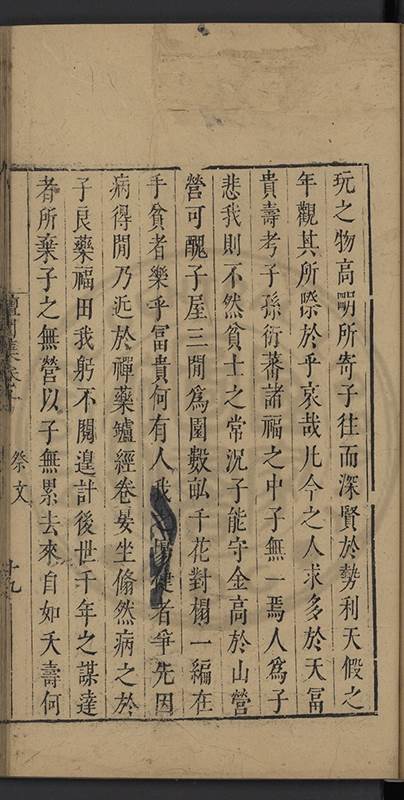 玩之物高明所寄子往而深賢於勢利天假之
年觀其所際於乎哀哉凡今之人求多於天冨
貴壽考子孫衍蕃諸福之中子無一焉人爲子
悲我則不然貧士之常況子能守金高於山營
營可醜子屋三閒爲園數畝千花對榻一編在
手貧者樂乎冨貴何有人我健者爭先因
病得閒乃近於禪藥爐經卷晏坐翛然病之於
子良藥福田我躬不閱遑計後世千年之謀達
者所棄子之無營以子無累去來自如夭壽何
祭文
十九